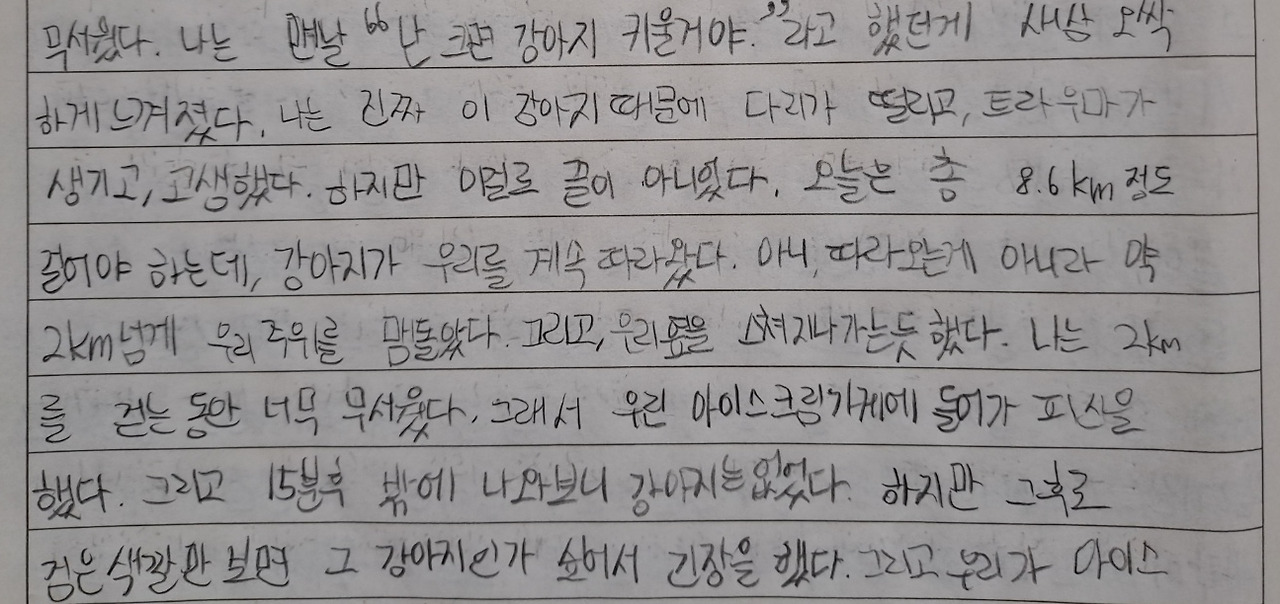 무서웠다. 나는 맨날 "난 크면 강아지 키울거야."라고 했던게 새삼 오싹
하게 느껴졌다. 나는 진짜 이 강아지 때문에 다리가 떨리고, 트라우마가
생기고, 고생했다. 하지만 이걸로 끝이 아니었다. 오늘은 총 8.6km 정도
걸어야 하는데, 강아지가 우리를 계속 따라왔다. 아니, 따라오는게 아니라 약
2km넘게 우리 주위를 맴돌았다. 그리고, 우리 옆을 스쳐지나가는듯 했다. 나는 2km
를 걷는 동안 너무 무서웠다. 그래서 우린 아이스크림가게에 들어가 피신을
했다. 그리고 15분후 밖에 나와보니 강아지는 없었다. 하지만 그 후로
검은 색깔만 보면 그 강아지인가 싶어서 긴장을 했다. 그리고 우리가 아이스